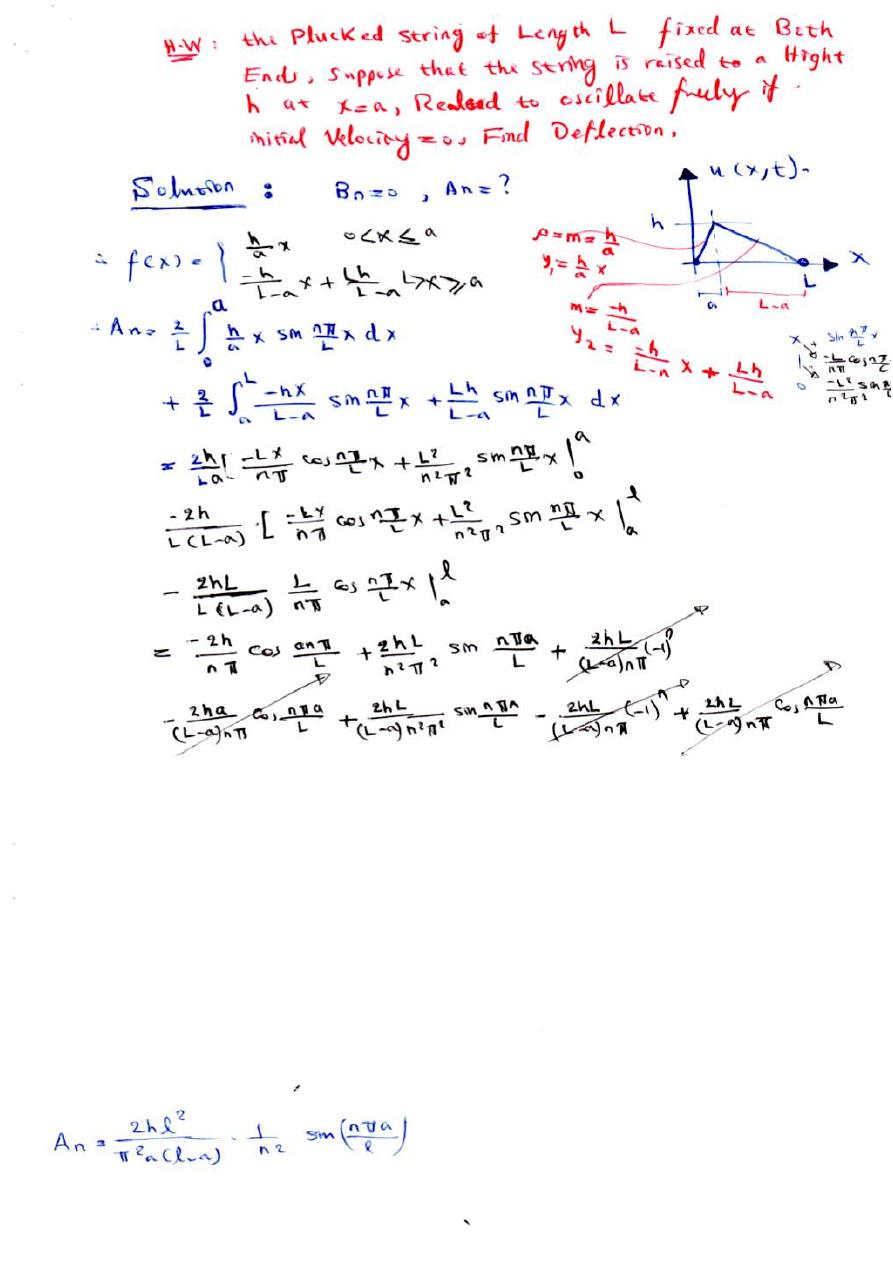 H.W : the Plucked string of Length L fixed at Both
Ends, suppose that the string is raised to a Hight
h at x=a, Realesd to oscillate freely if
initial Velocity = 0, Find Deflection.
Solution : Bn=0 , An=?
u(x,t)
h
x
L
a
L-a
∴ f(x) = { h/a x 0<x≤a
-h/(L-a) x + Lh/(L-a) L>x≥a
m = h/a
y₁ = h/a x
m = -h/(L-a)
y₂ = -h/(L-a) x + Lh/(L-a)
x + sin nπ/L x
1 - -L/nπ cos nπ/L
0 -L²/n²π² sin
∴ An = 2/L ∫₀ᵃ h/a x sin nπ/L x dx
+ 2/L ∫ₐᴸ -hx/(L-a) sin nπ/L x + Lh/(L-a) sin nπ/L x dx
= 2h/La [ -Lx/nπ cos nπ/L x + L²/n²π² sin nπ/L x |₀ᵃ
-2h/L(L-a) · [ -Lx/nπ cos nπ/L x + L²/n²π² sin nπ/L x |ₐˡ
- 2hL/L(L-a) L/nπ cos nπ/L x |ₐˡ
= -2h/nπ cos anπ/L + 2hL/n²π² sin nπa/L + 2hL/(L-a)nπ (-1)ⁿ
- 2ha/(L-a)nπ cos nπa/L + 2hL/(L-a)n²π² sin nπa/L - 2hL/(L-a)nπ (-1)ⁿ + 2hL/(L-a)nπ cos nπa/L
An = 2hl²/π²a(l-a) · 1/n² sin(nπa/l)